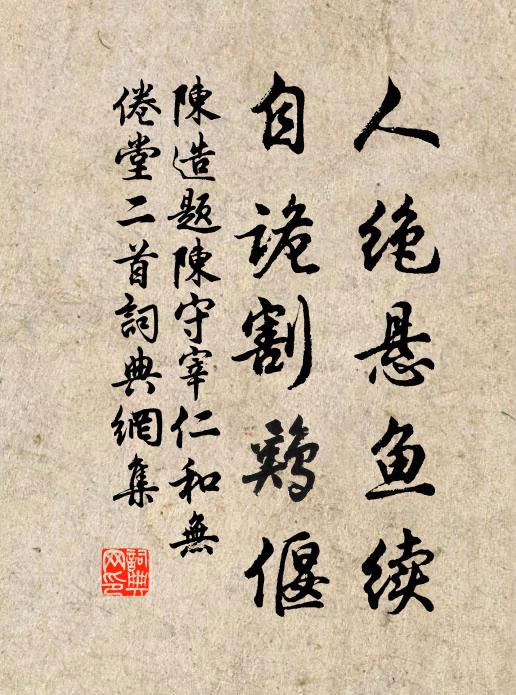 人绝悬鱼续
自诡割鷄偃
陳造题陳守宰仁和無
倦堂二首詞典網集
詞典网印